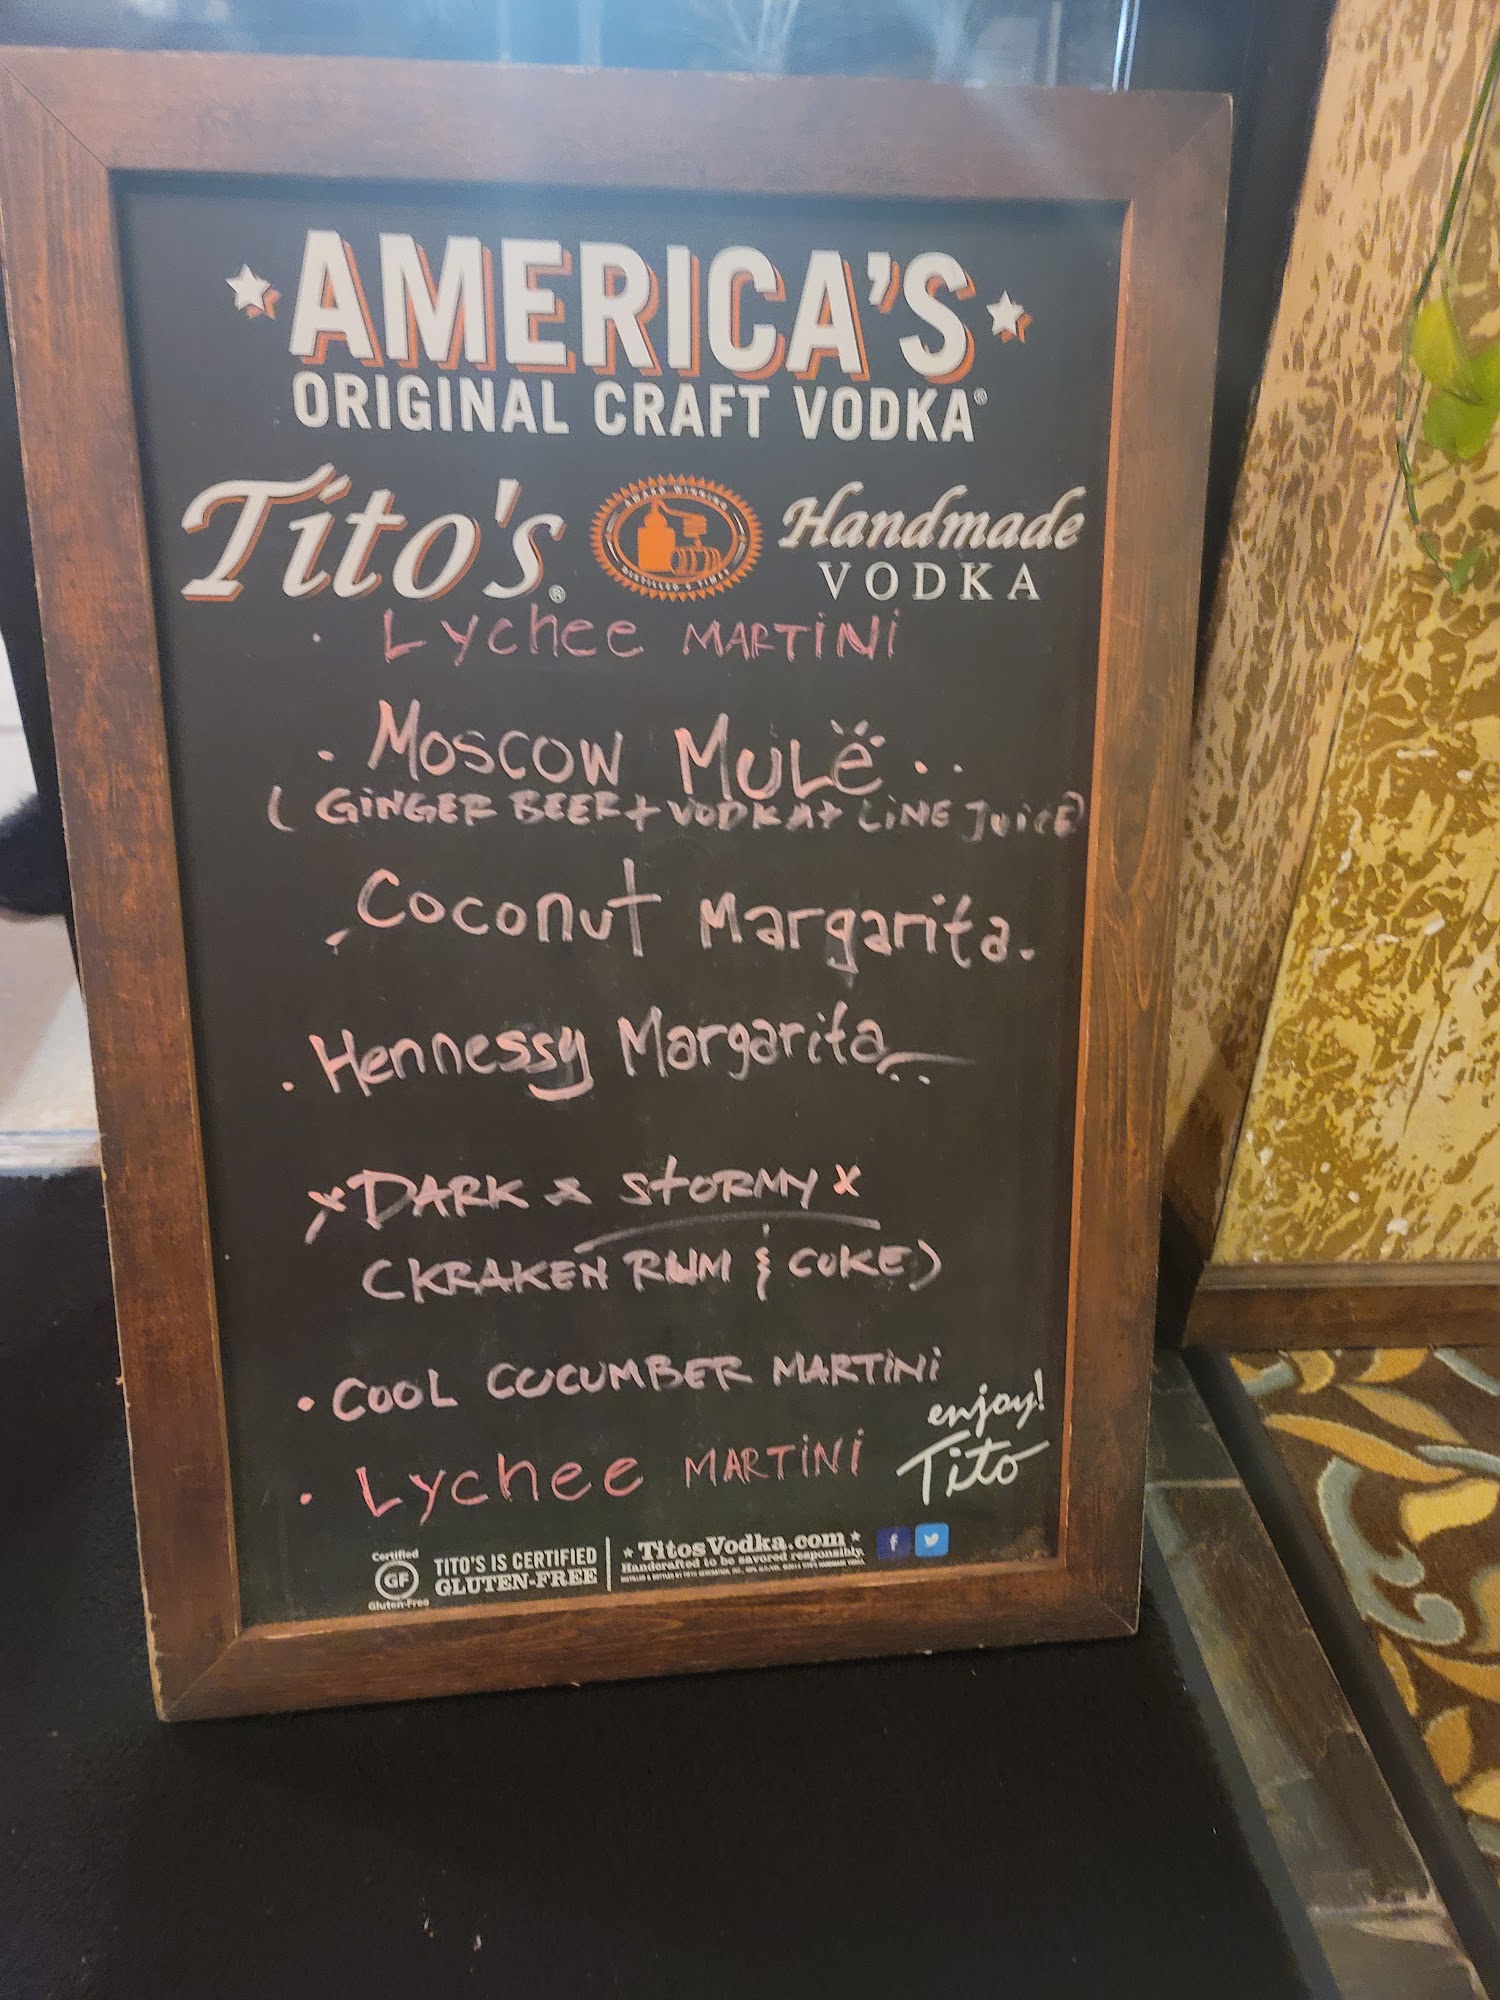 AMERICA'S
ORIGINAL CRAFT VODKA®
Tito's® AWARD WINNING DISTILLED 6 TIMES Handmade
VODKA
· Lychee MARTINI
· MOSCOW MULE ..
( GINGER BEER + VODKA + LINE JUICE)
. Coconut Margarita.
. Hennessy Margarita
x DARK & STORMY x
(KRAKEN RUM & COKE)
· COOL COCUMBER MARTINI
enjoy!
Tito
· Lychee MARTINI
Certified
GF
Gluten-Free
TITO'S IS CERTIFIED
GLUTEN-FREE
TitosVodka.com
Handcrafted to be savored responsibly.